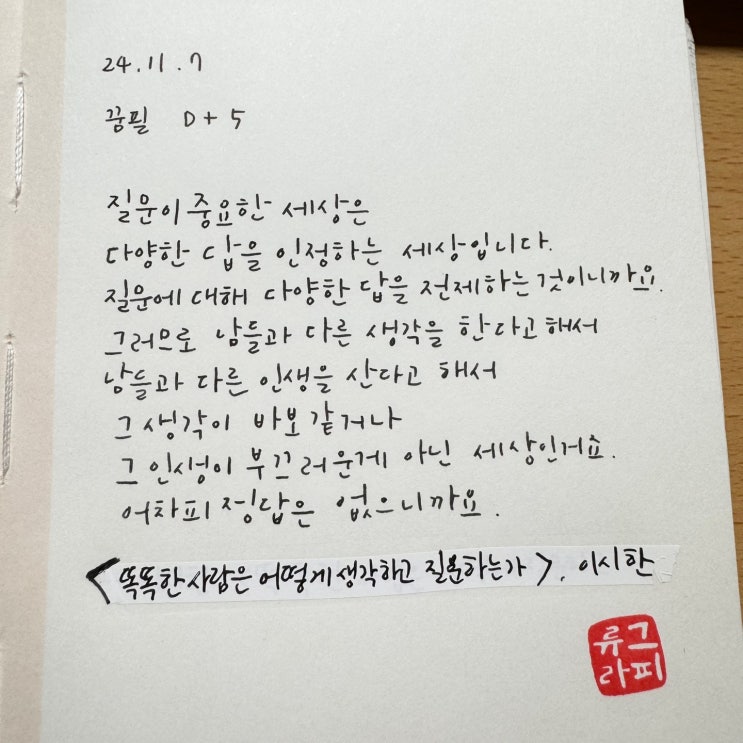 24.11.7
꿈필 D+5
질문이 중요한 세상은
다양한 답을 인정하는 세상입니다.
질문에 대해 다양한 답을 전제하는것이니까요.
그러므로 남들과 다른 생각을 한다고해서
남들과 다른 인생을 산다고 해서
그 생각이 바보 같거나
그 인생이 부끄러운게 아닌 세상인거죠.
어차피 정답은 없으니까요.
<똑똑한 사람은 어떻게 생각하고 질문하는가>, 이시한
류그
라피